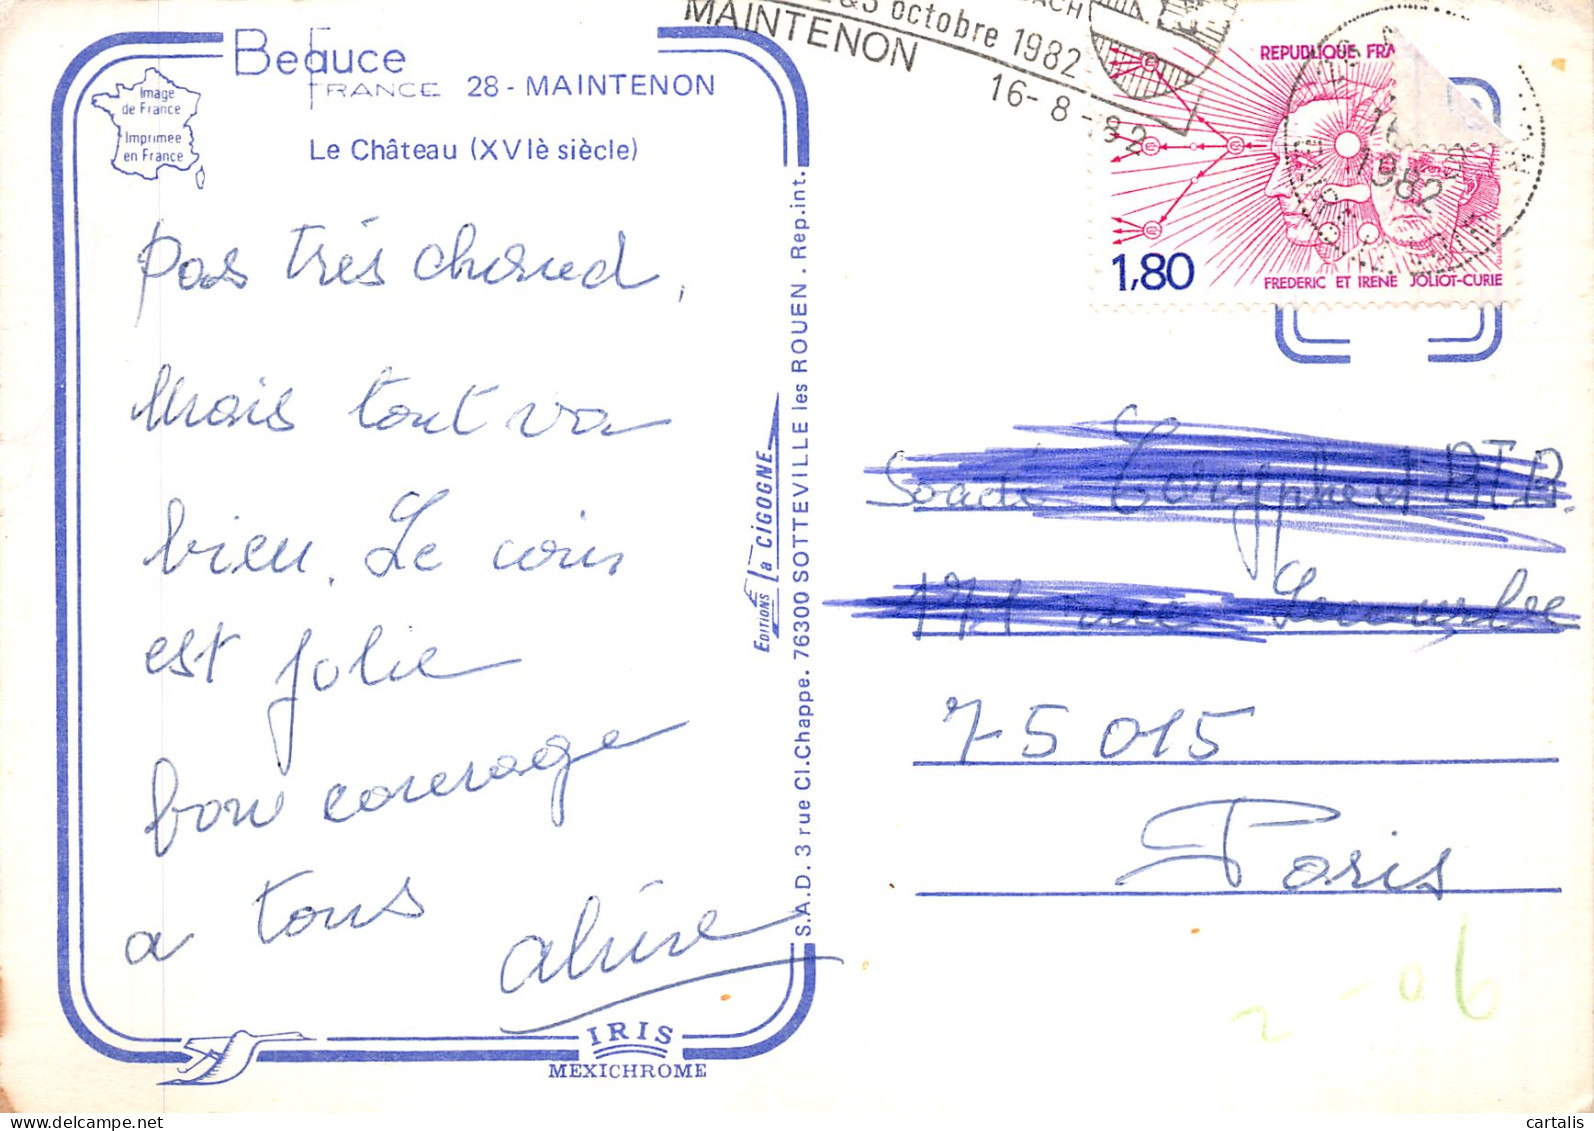 Beauce
FRANCE 28 - MAINTENON
Le Château (XVIè siècle)
Image
de France
Imprimée
en France
Pas très chaud,
Mais tout va
bien. Le coin
est jolie
bon courage
a tous
EDITIONS la CIGOGNE
S.A.D. 3 rue Cl.Chappe. 76300 SOTTEVILLE les ROUEN. Rep.int.
IRIS
MEXICHROME
octobre 1982
MAINTENON
16-8-82
REPUBLIQUE FRA
1982
1,80
FREDERIC ET IRENE JOLIOT-CURIE
171 rue Lecourbe
75015
Paris
cartalis
www.delcampe.net